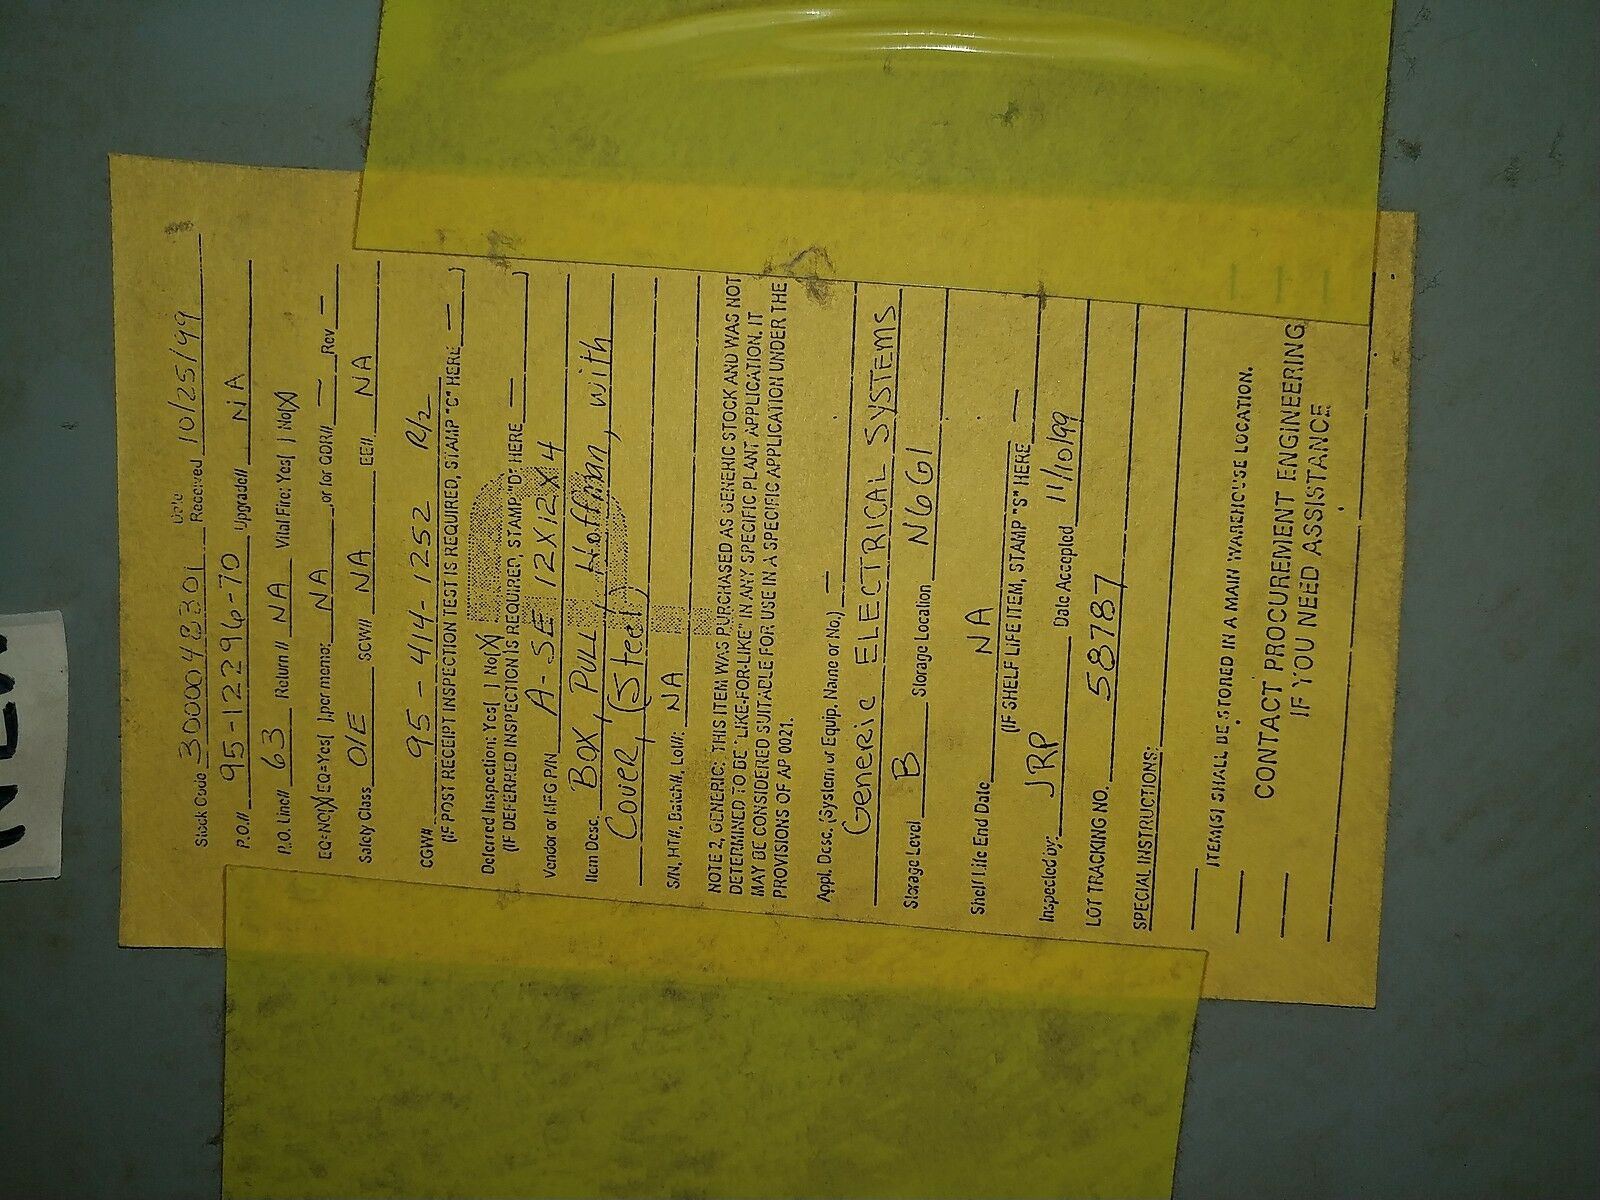 Stock Code 3000048301 Date Received 10/25/99
P.O.# 95-12296-70 Upgrade# NA
P.O. Line# 63 Return # NA Vital Fire: Yes[ ] No[X]
EQ=NO[X] EQ=Yes[ ], per memo: NA or for QDR# — Rev —
Safety Class O/E SCW# NA EE# NA
CGW# 95-414-1252 R/2
(IF POST RECEIPT INSPECTION TEST IS REQUIRED, STAMP "C" HERE — ]
Deferred Inspection: Yes[ ] No[X]
(IF DEFERRED INSPECTION IS REQUIRED, STAMP "D" HERE — ]
Vendor or MFG P/N A-SE 12X12X4
Item Desc. BOX, PULL, Hoffman, with
Cover, (Steel)
S/N, HT#, Batch#, Lot#: NA
NOTE 2, GENERIC: THIS ITEM WAS PURCHASED AS GENERIC STOCK AND WAS NOT
DETERMINED TO BE "LIKE-FOR-LIKE" IN ANY SPECIFIC PLANT APPLICATION. IT
MAY BE CONSIDERED SUITABLE FOR USE IN A SPECIFIC APPLICATION UNDER THE
PROVISIONS OF AP 0021.
Appl. Desc. (System or Equip. Name or No.) —
Generic ELECTRICAL SYSTEMS
Storage Level B Storage Location N6G1
Shelf Life End Date NA
(IF SHELF LIFE ITEM, STAMP "S" HERE —
Inspected by: JRP Date Accepted 11/10/99
LOT TRACKING NO. 58787
SPECIAL INSTRUCTIONS:
ITEM(S) SHALL BE STORED IN A MAIN WAREHOUSE LOCATION.
CONTACT PROCUREMENT ENGINEERING
IF YOU NEED ASSISTANCE